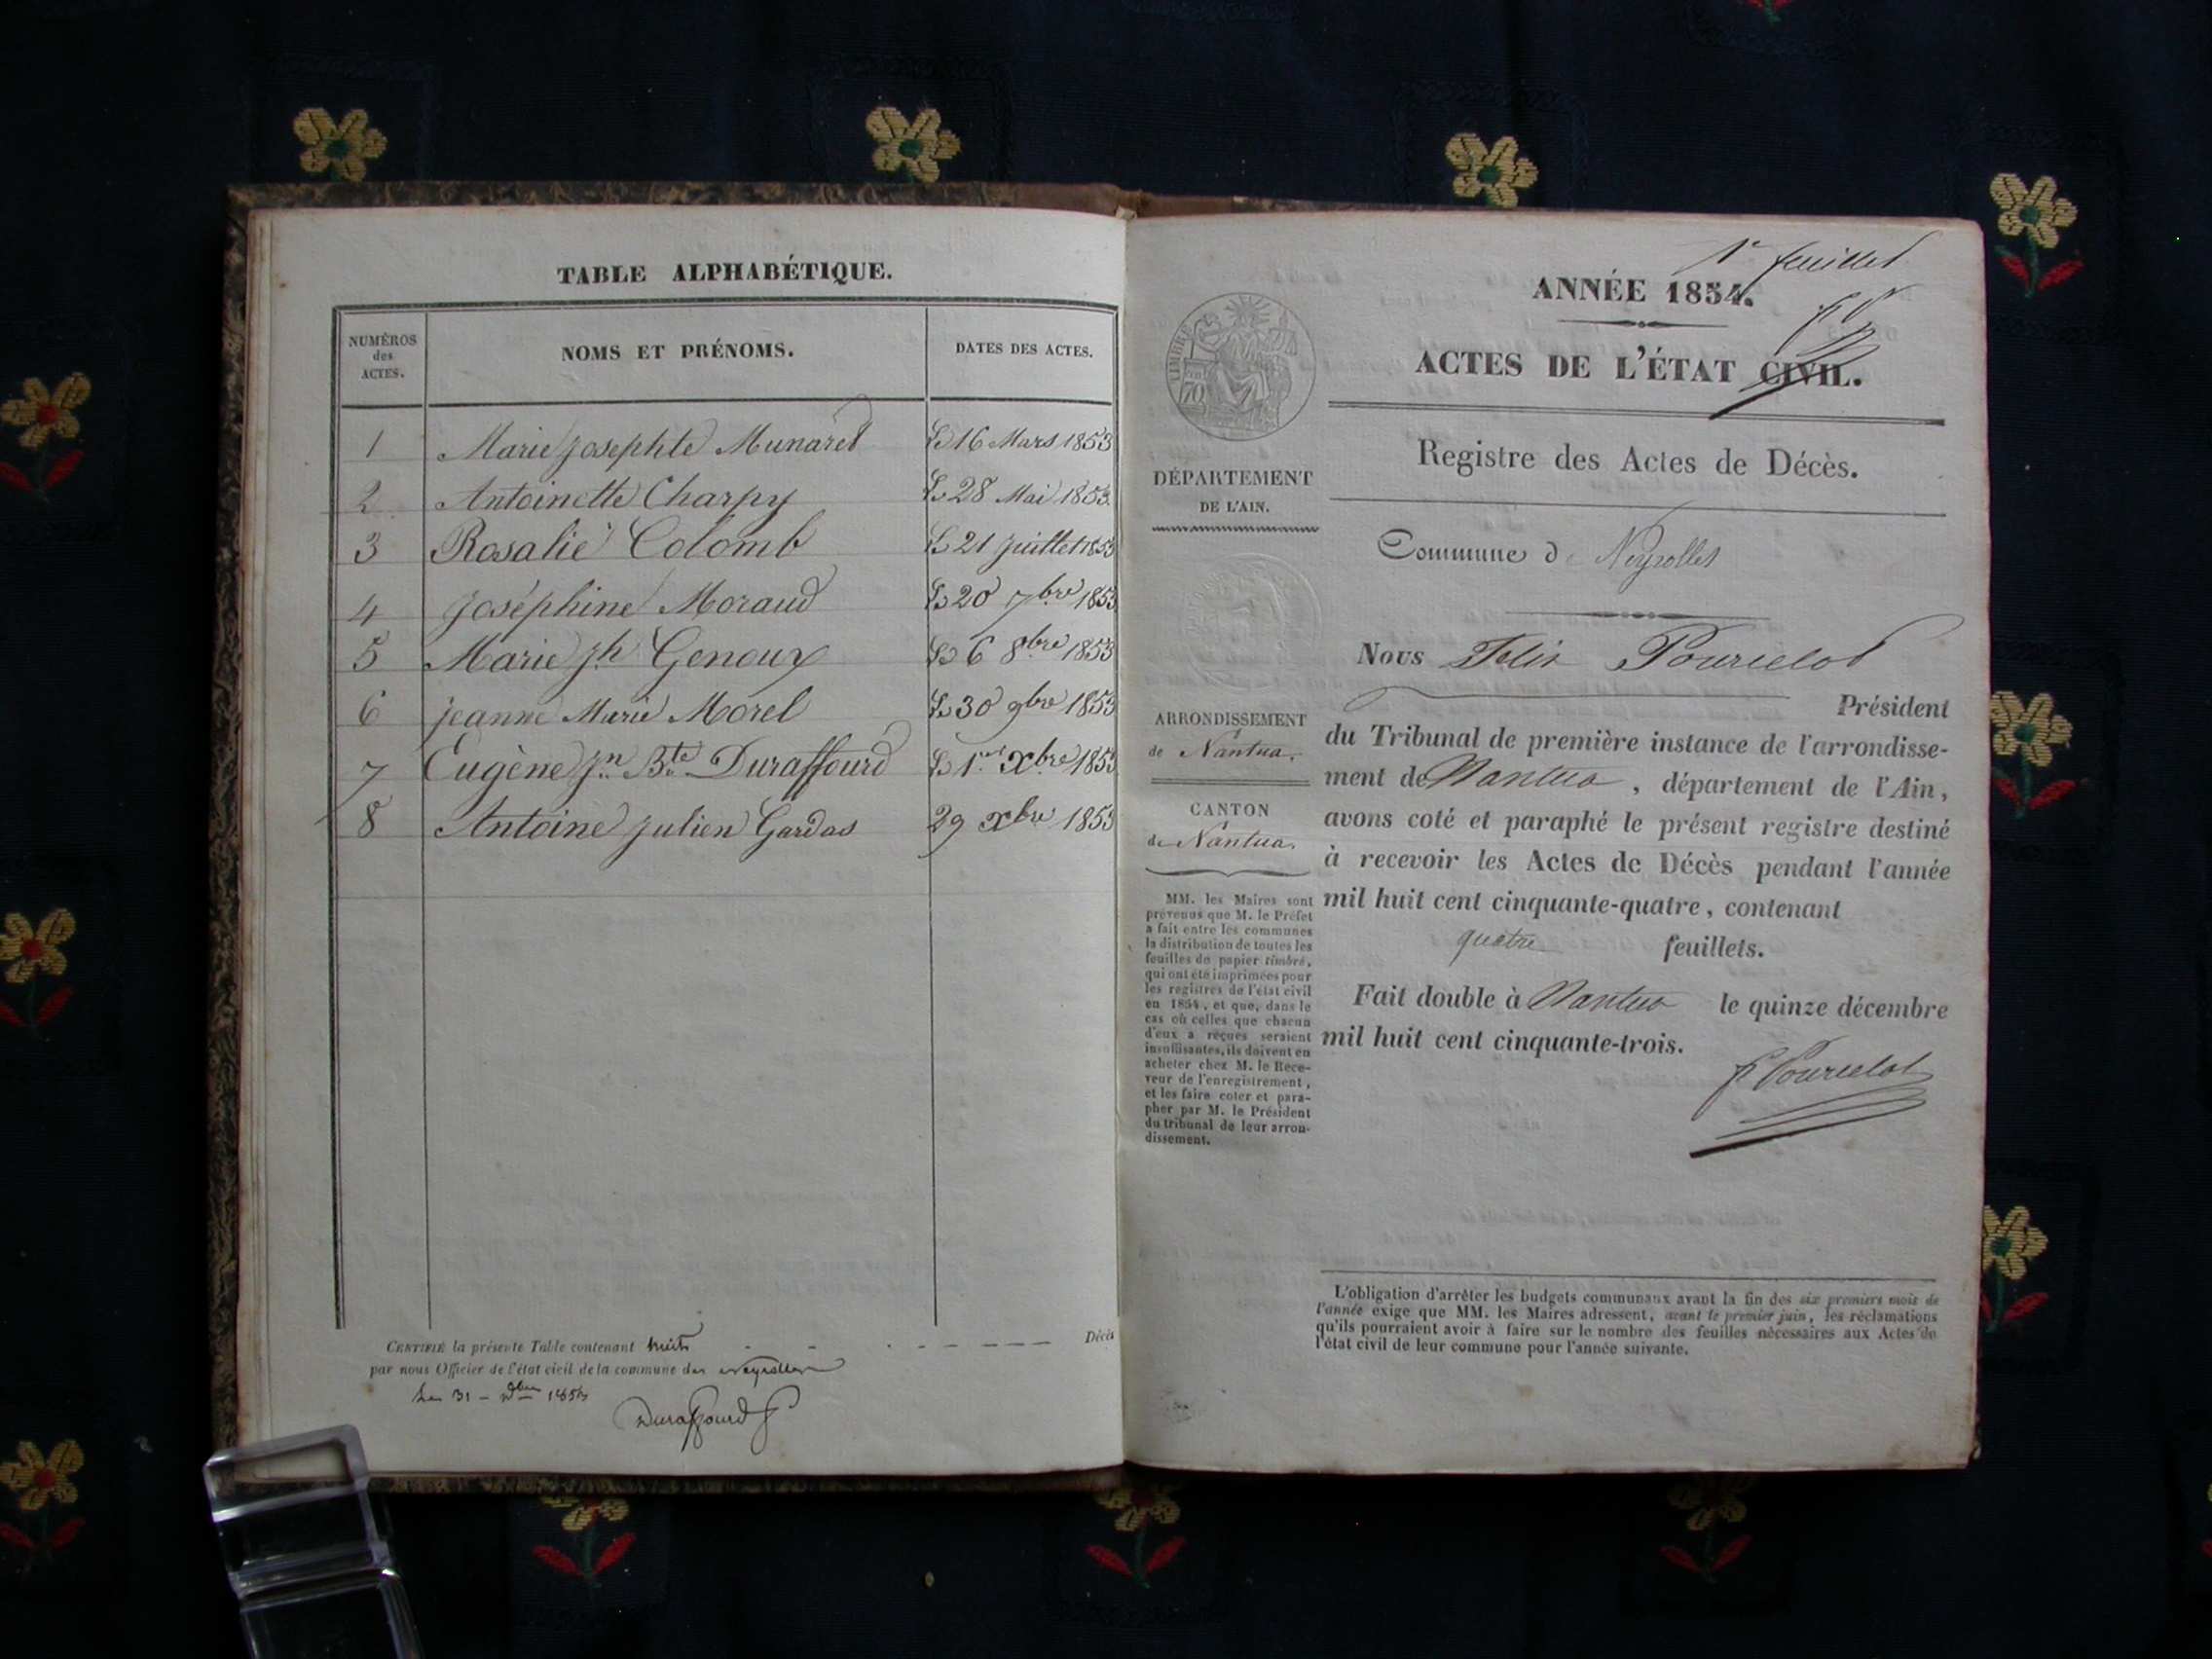 TABLE ALPHABÉTIQUE.
NUMÉROS
des
ACTES.
NOMS ET PRÉNOMS.
DATES DES ACTES.
1 Marie Josephte Munaret Le 16 Mars 1853
2 Antoinette Charpy Le 28 Mai 1853
3 Rosalie Colomb Le 21 Juillet 1853
4 Joséphine Moraud Le 20 7bre 1853
5 Marie Jh Genoux Le 6 8bre 1853
6 Jeanne Marie Morel Le 30 9bre 1853
7 Eugène Jn Bte Duraffourd Le 1er Xbre 1853
8 Antoine Julien Gardas 29 Xbre 1853
CERTIFIÉ la présente Table contenant huit Décès
par nous Officier de l'état civil de la commune des Neyrolles
31
Duraffourd
1er feuillet
ANNÉE 1854.
ACTES DE L'ÉTAT CIVIL.
Registre des Actes de Décès.
TIMBRE
70
DÉPARTEMENT
DE L'AIN.
Commune d Neyrolles
Nous Félix Pourcelot
Président
du Tribunal de première instance de l'arrondisse-
ment de Nantua, département de l'Ain,
avons coté et paraphé le présent registre destiné
à recevoir les Actes de Décès pendant l'année
mil huit cent cinquante-quatre, contenant
quatre feuillets.
Fait double à Nantua le quinze décembre
mil huit cent cinquante-trois.
F Pourcelot
ARRONDISSEMENT
de Nantua.
CANTON
de Nantua.
MM. les Maires sont
prévenus que M. le Préfet
a fait entre les communes
la distribution de toutes les
feuilles de papier timbré,
qui ont été imprimées pour
les registres de l'état civil
en 1854, et que, dans le
cas où celles que chacun
d'eux a reçues seraient
insuffisantes, ils doivent en
acheter chez M. le Rece-
veur de l'enregistrement,
et les faire coter et para-
pher par M. le Président
du tribunal de leur arron-
dissement.
L'obligation d'arrêter les budgets communaux avant la fin des six premiers mois de
l'année exige que MM. les Maires adressent, avant le premier juin, les réclamations
qu'ils pourraient avoir à faire sur le nombre des feuilles nécessaires aux Actes de
l'état civil de leur commune pour l'année suivante.